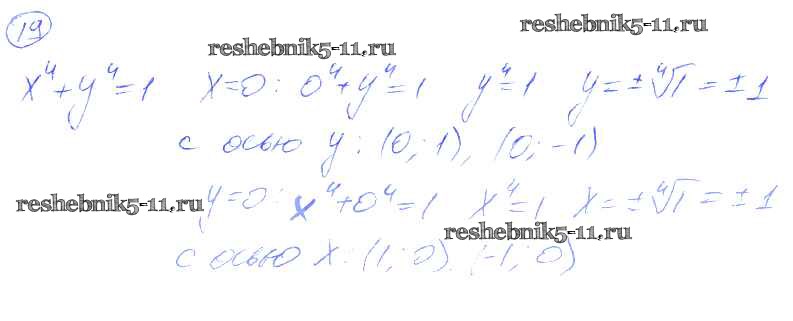 19
reshebnik5-11.ru
reshebnik5-11.ru
x⁴+y⁴=1 x=0: 0⁴+y⁴=1 y⁴=1 y=±⁴√1=±1
с осью y: (0; 1), (0; -1)
reshebnik5-11.ru y=0: x⁴+0⁴=1 x⁴=1 x=±⁴√1=±1
reshebnik5-11.ru
с осью x: (1; 0), (-1; 0)